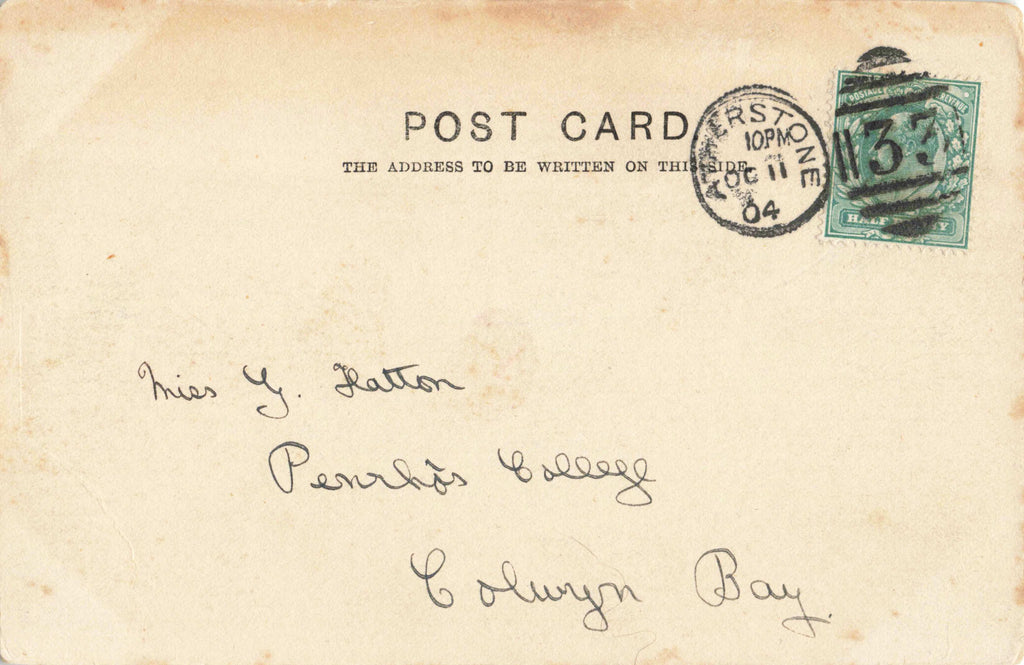 POST CARD
THE ADDRESS TO BE WRITTEN ON THIS SIDE.
ATHERSTONE
10PM
OC 11
04
33
POSTAGE REVENUE
HALF
Miss G. Hatton
Penrhôs College
Colwyn Bay.